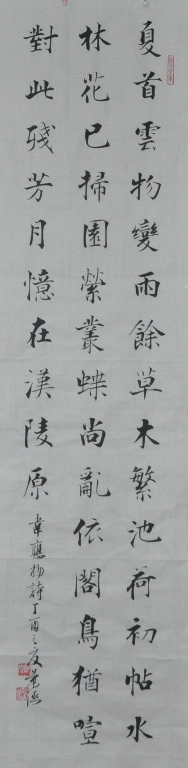 夏首雲物變雨餘草木繁池荷初帖水
林花已掃園縈叢蝶尚亂依閣鳥猶喧
對此殘芳月憶在漢陵原
韋應物詩丁酉之夏